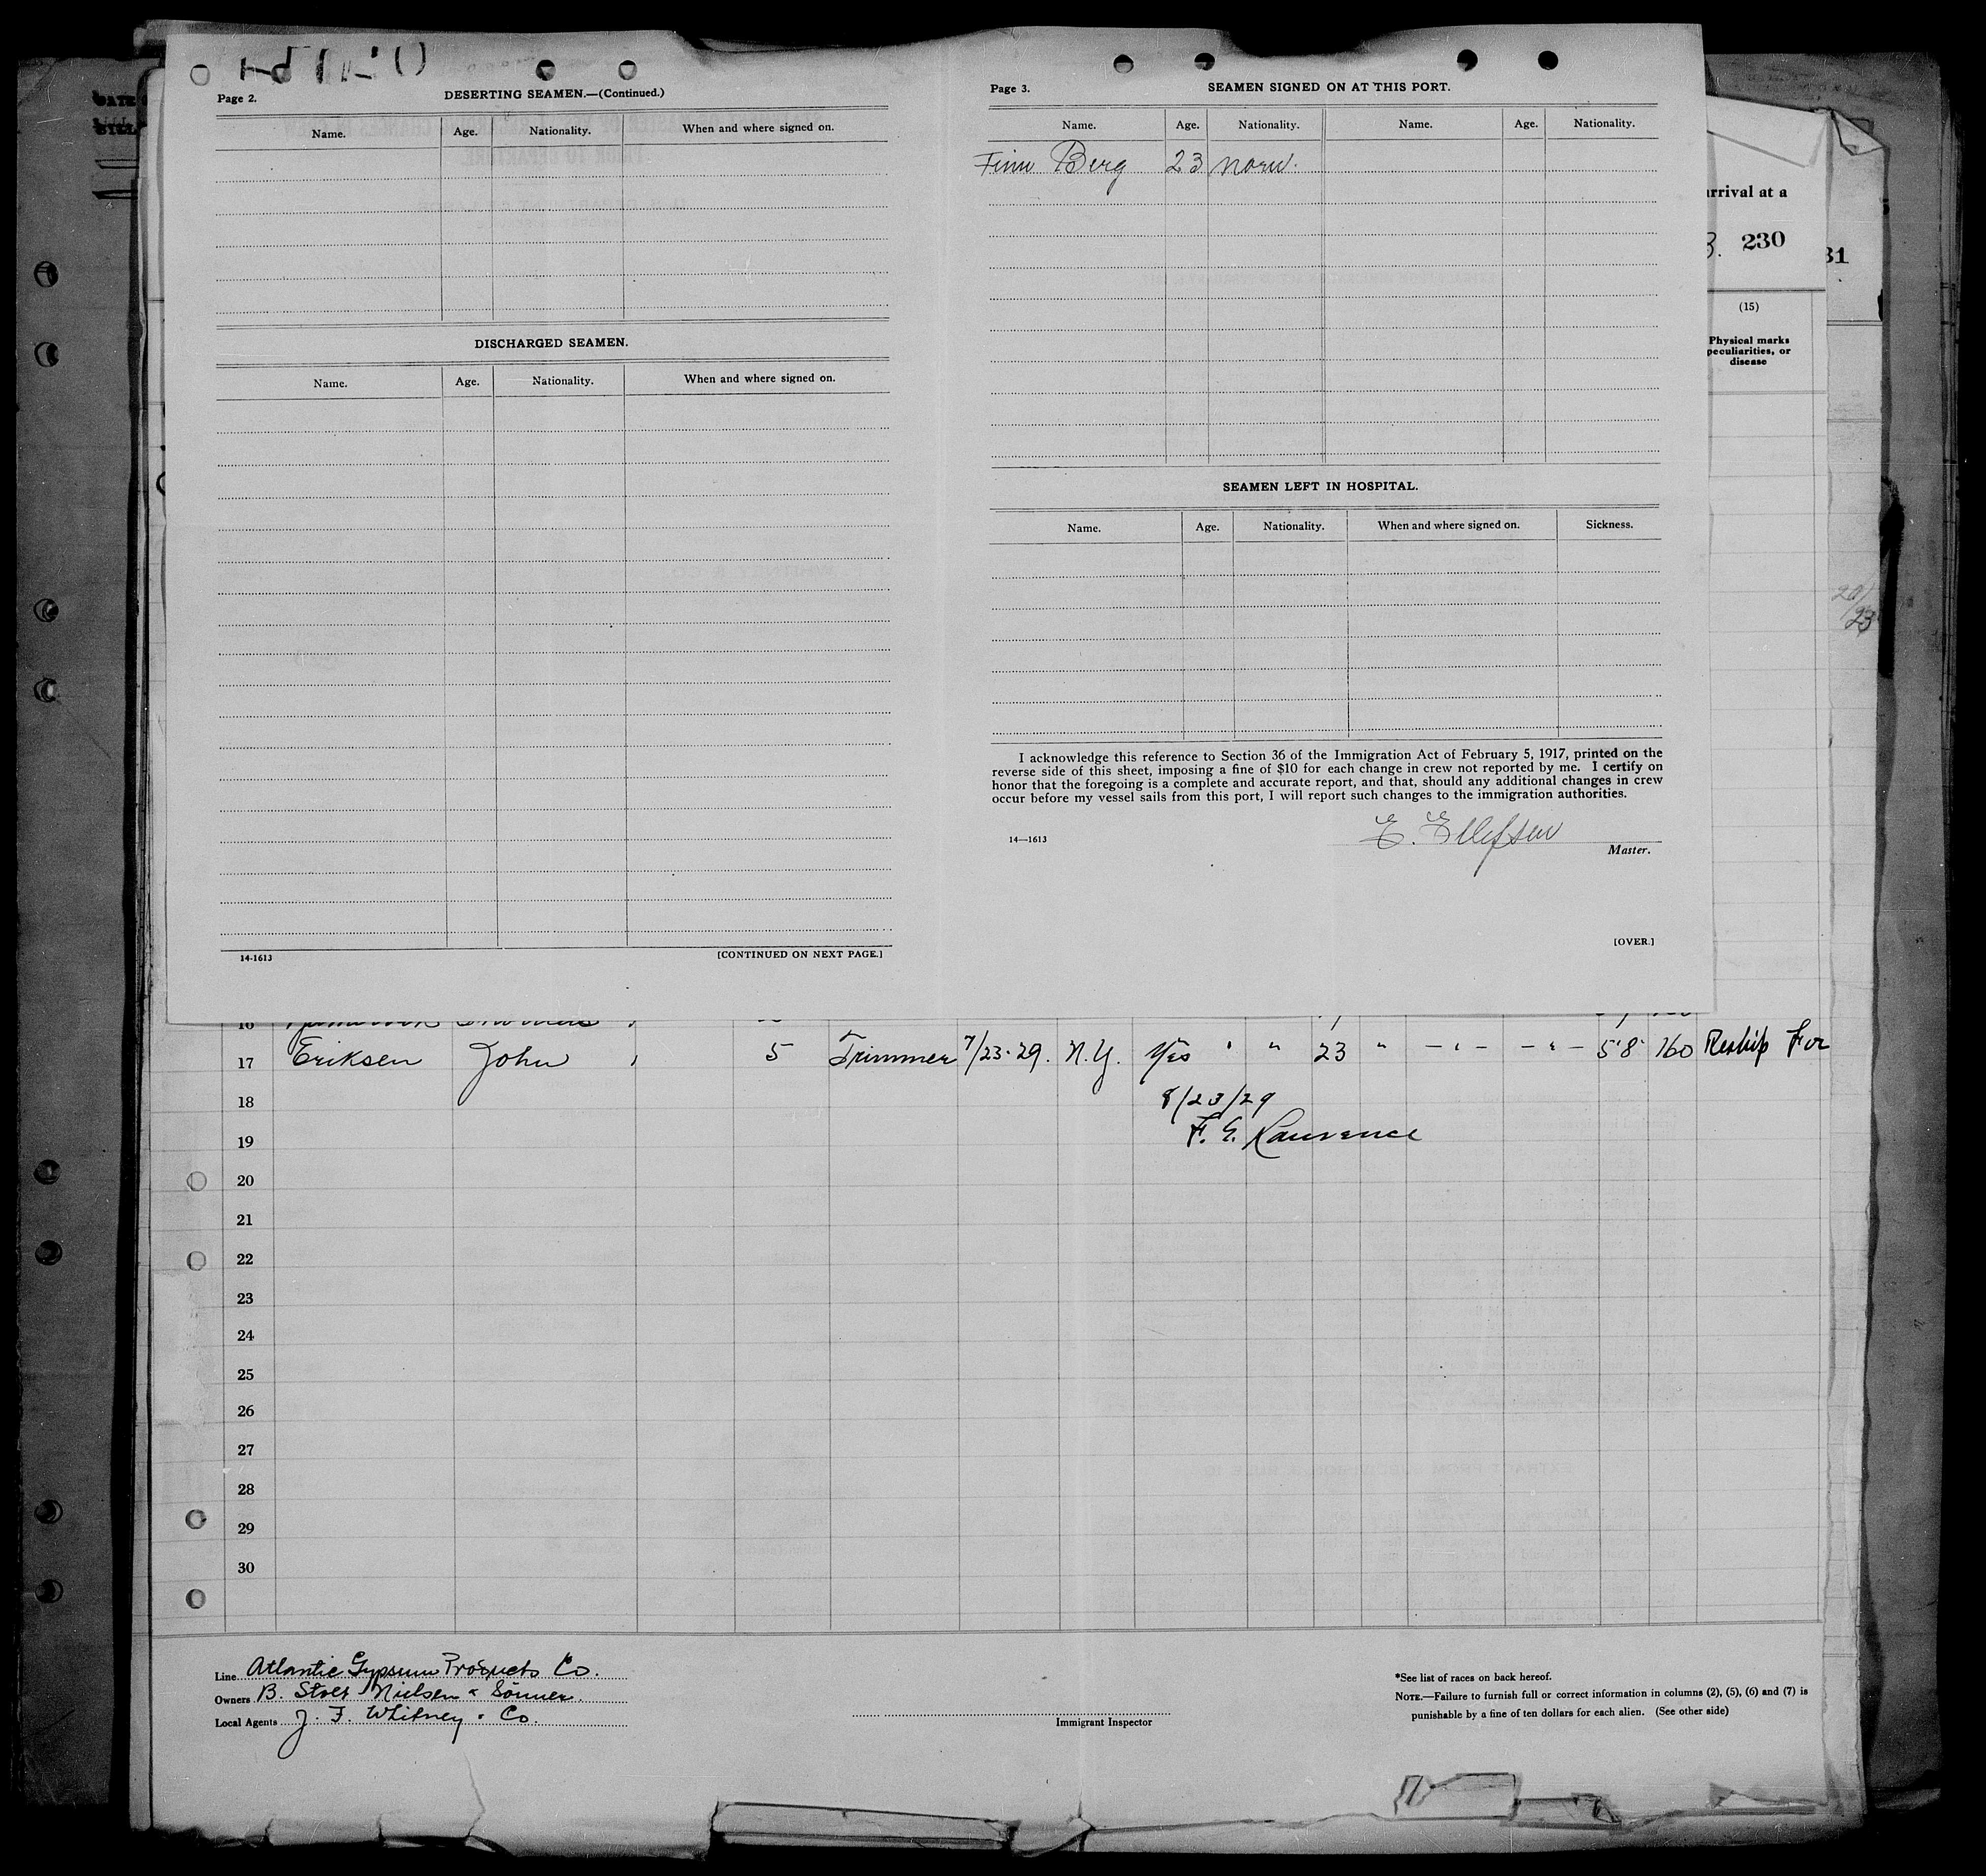 Page 2.
DESERTING SEAMEN.—(Continued.)
Name. Age. Nationality. When and where signed on.
DISCHARGED SEAMEN.
Name. Age. Nationality. When and where signed on.
14-1613 [CONTINUED ON NEXT PAGE.]
Page 3.
SEAMEN SIGNED ON AT THIS PORT.
Name. Age. Nationality. Name. Age. Nationality.
Finn Berg 23 norw.
SEAMEN LEFT IN HOSPITAL.
Name. Age. Nationality. When and where signed on. Sickness.
I acknowledge this reference to Section 36 of the Immigration Act of February 5, 1917, printed on the
reverse side of this sheet, imposing a fine of $10 for each change in crew not reported by me. I certify on
honor that the foregoing is a complete and accurate report, and that, should any additional changes in crew
occur before my vessel sails from this port, I will report such changes to the immigration authorities.
E. Ellefsen
14—1613
Master.
[OVER.]
arrival at a
230
31
(15)
Physical marks
peculiarities, or
disease
20/
23
16
17 Eriksen John 5 Trimmer 7/23-29. N.Y. Yes " 23 " 5'8 160 Reship For
18 8/23/29
19 F. G. Laurence
20
21
22
23
24
25
26
27
28
29
30
Line Atlantic Gypsum Products Co.
Owners B. Stolt Nielsen & Sönner.
Local Agents J. F. Whitney & Co.
Immigrant Inspector
*See list of races on back hereof.
NOTE.—Failure to furnish full or correct information in columns (2), (5), (6) and (7) is
punishable by a fine of ten dollars for each alien. (See other side)